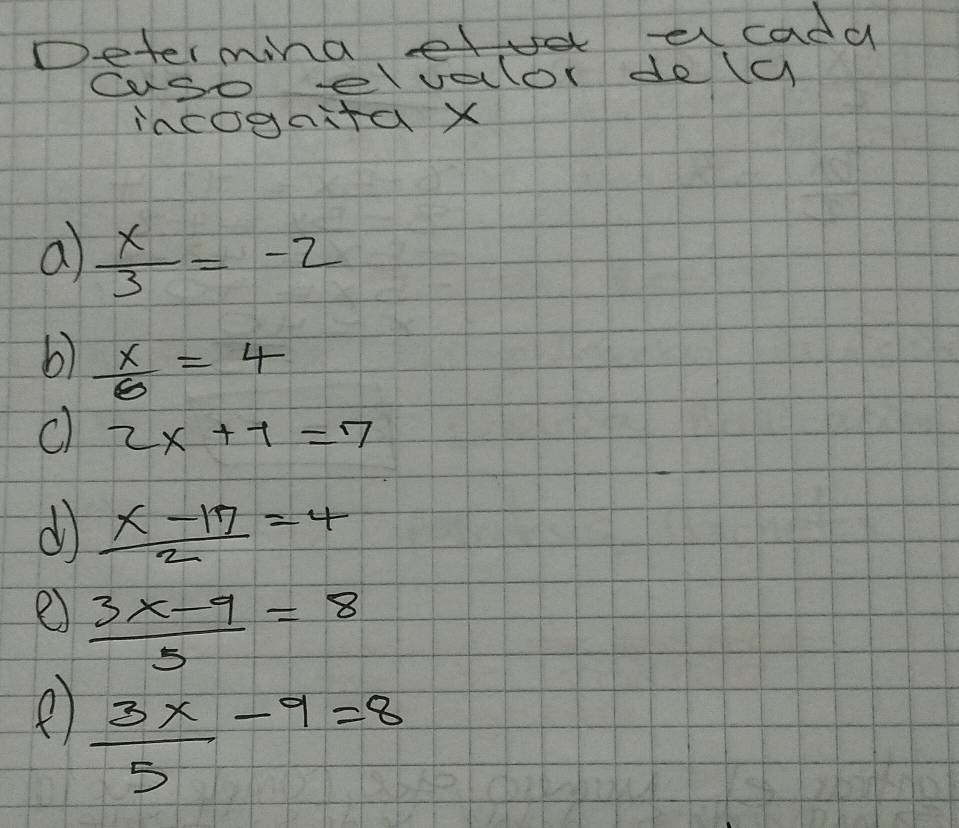 Determina el val en cada
caso el valor de la
incognita x
a) x/3 = -2
b) x/6 = 4
c) 2x + 1 = 7
d) x - 17/2 = 4
e) 3x - 9/5 = 8
f) 3x/5 - 9 = 8